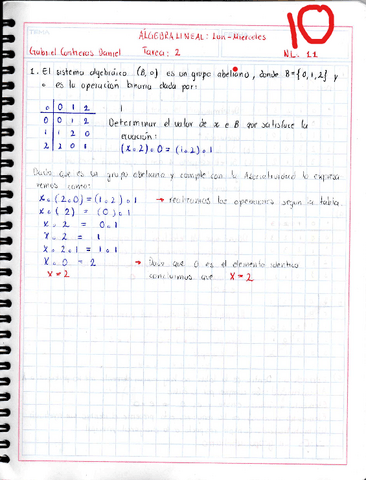 TEMA
ÁLGEBRA LINEAL: Lun - Miércoles
10
Gabriel Contreras Daniel Tarea: 2 NL. 11
1. El sistema algebráico (B, o) es un grupo abeliano, donde B = {0, 1, 2} y
o es la operación binaria dada por:
o 0 1 2
0 0 1 2
1 1 2 0
2 2 0 1
Determinar el valor de x ∈ B que satisface la
ecuación:
(x o 2) o 0 = (1 o 2) o 1
Dado que es un grupo abeliano y cumple con la Asociatividad lo expresa
remos como:
x o (2 o 0) = (1 o 2) o 1 → realizamos las operaciones según la tabla.
x o (2) = (0) o 1
x o 2 = 0 o 1
x o 2 = 1
x o 2 o 1 = 1 o 1
x o 0 = 2 → Dado que 0 es el elemento idéntico
x = 2 concluimos que x = 2